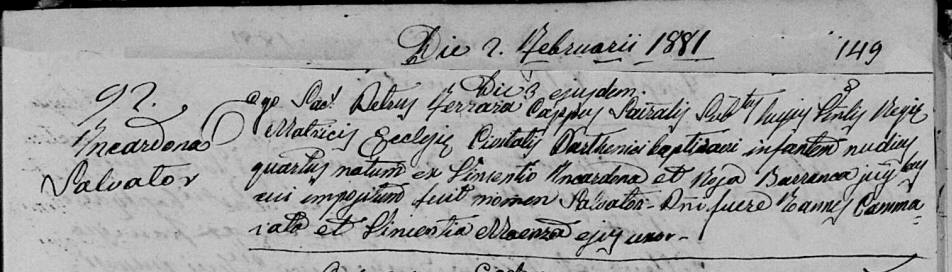 Die 2. Februarii 1881
149
Die 3 ejusdem.
92.
Incardona
Salvator
Ego Sac. Petrus Ferrara Cappus Sacralis Subtus hujus Regie
Matricis Ecclesie Civitatis Parthenici baptizavi infantem nudius
quartus natum ex Vincentio Incardona et Rosa Barranca jugbus
cui impositum fuit nomen Salvator. Pni fuere Joannes Camma-
rata et Vincentia ejus uxor.